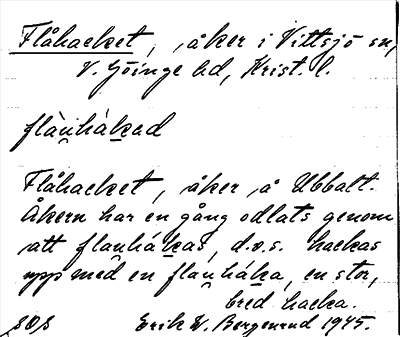 Flåhacket, åker i Vittsjö sn,
V. Göinge hd, Krist. l.
flàu̯hákad
Flåhacket, åker å Ubbalt.
Åkern har en gång odlats genom
att flau̯hákas, d.v.s. hackas
upp med en flau̯háka, en stor,
bred hacka.
sos Erik W. Bergenrud 1945.